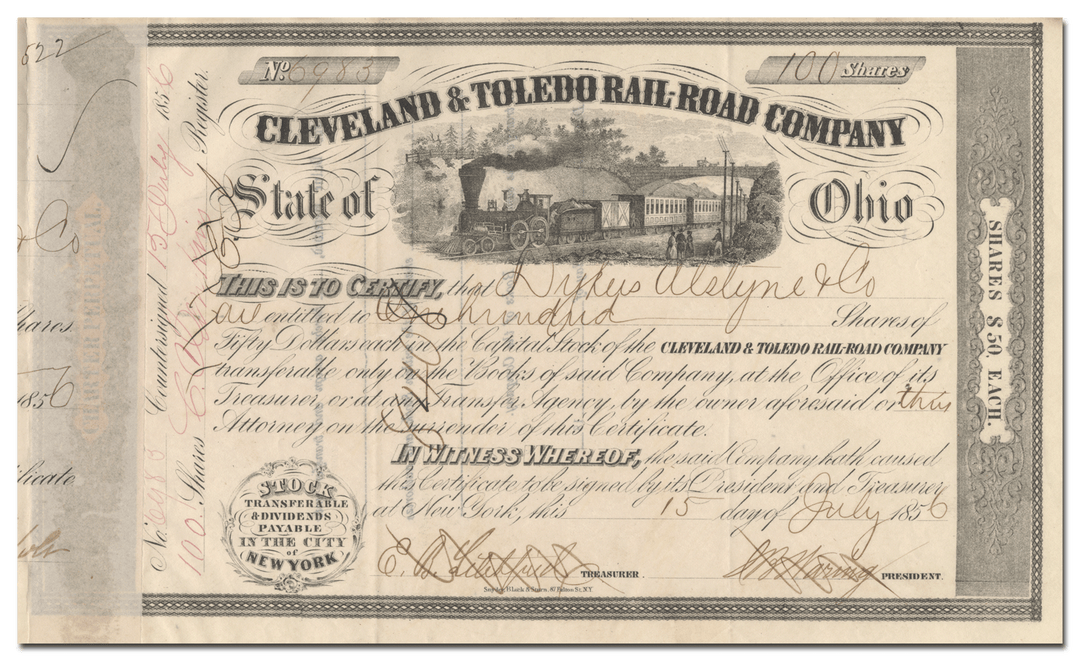 522
No. 6983
100 Shares
CLEVELAND & TOLEDO RAIL-ROAD COMPANY
State of Ohio
THIS IS TO CERTIFY, that Dykers Alstyne & Co
are entitled to One hundred Shares of
Fifty Dollars each in the Capital Stock of the CLEVELAND & TOLEDO RAIL-ROAD COMPANY
transferable only on the Books of said Company, at the Office of its
Treasurer, or at any Transfer Agency, by the owner aforesaid or their
Attorney on the surrender of this Certificate.
IN WITNESS WHEREOF, the said Company hath caused
this Certificate to be signed by its President and Treasurer
at New York, this 15 day of July 1856
TREASURER.
PRESIDENT.
Snyder, Black & Sturn, 87 Fulton St. N.Y.
STOCK
TRANSFERABLE
& DIVIDENDS
PAYABLE
IN THE CITY
of
NEW YORK
SHARES $50. EACH.
No. 6983 Countersigned 15 July 1856
100 Shares Register.
& Co
hares
1856
ificate